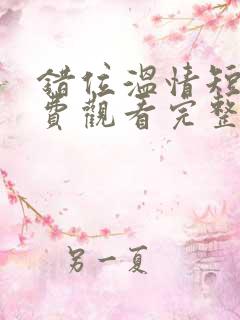 錯位溫情短
費觀看完整
另一夏